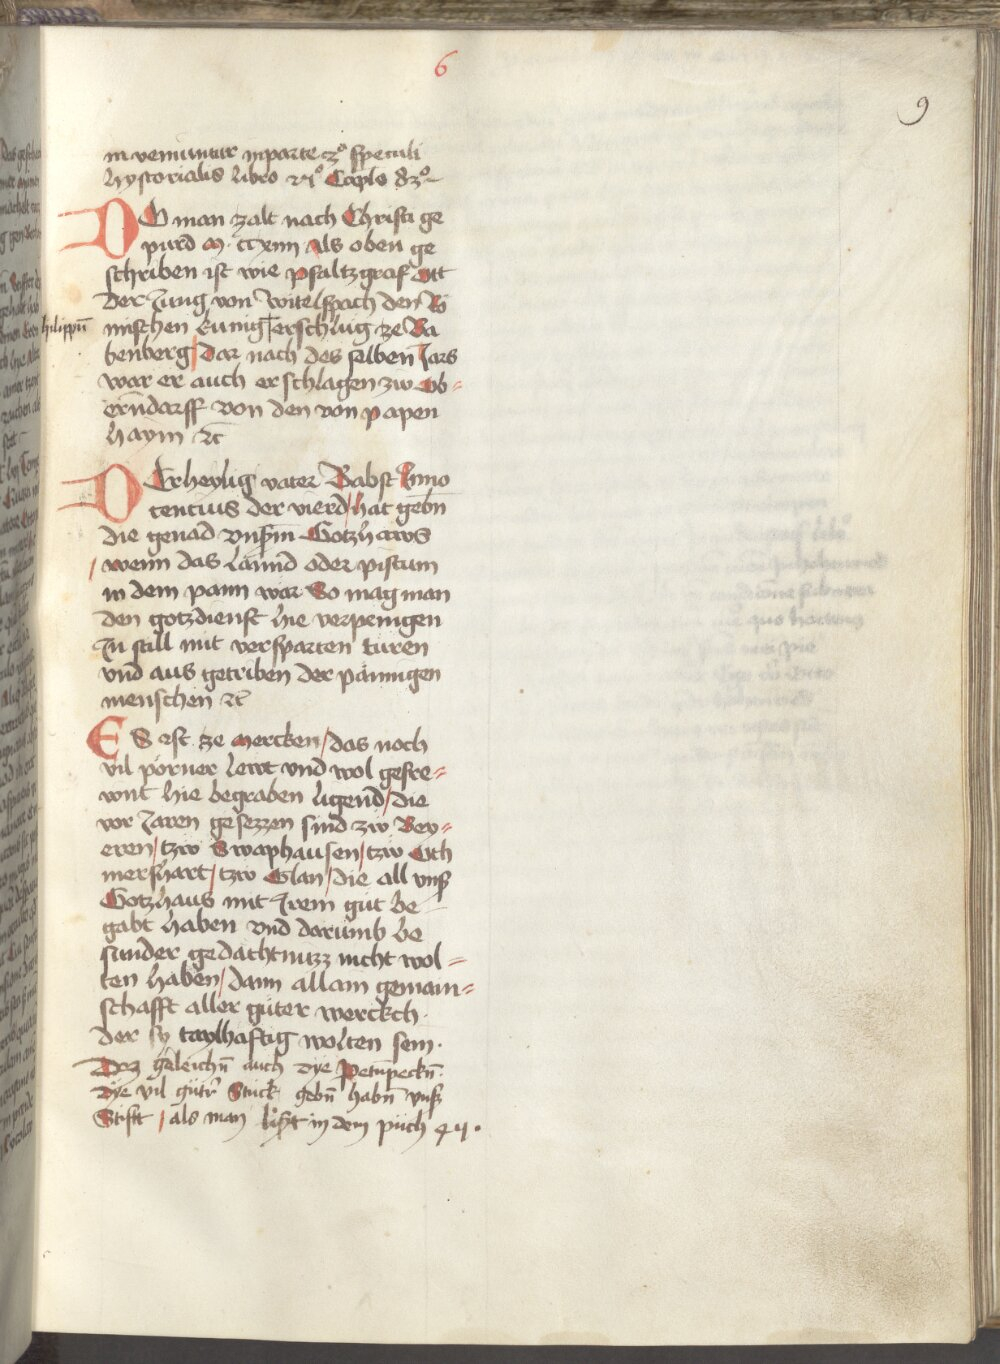 6
9
inveniuntur in parte czo speculi
hystorialis libro Caplo 830
DO man zalt nach Christi ge
purd M. ccxiiii Als oben ge
schriben ist wie pfaltzgraf Ott
der Jung von Witelspach den Rö
mischen kunig erschlug ze Ba
hilippū
benberg / Dar nach des selben Jars
war er auch erschlagen zw Ob=
erndarff von den von papen
haym
DEr heylig vater Babst Inno
centius der vierd / hat gebn̄
die genad Gotzhaws
/ wenn das lannd oder pistum
in dem pann wär So mag man
den gotzdienst hie verpenigen
Zu still mit versparten türen
vnd aus getriben der pännigen
menschen
ES ist ze mercken / das noch
vil porner lewt vnd wol gefre=
wnt hie begraben ligend / die
vor Jaren gesezzen sind zw Bey=
eren / tzw Swaphausen / tzw Oth
mershart / tzw Glan / die all vnß
Gotzhaus mit Irem gut be
gabt haben vnd darumb be
sunder gedächtnuzz nicht wol=
ten haben / dann allain gemain=
schafft aller guter werckch.
der sy taylhäftig wolten sein.
Dez geleichn̄ auch dye Petnpeckn̄
dye vil gutr̄ Stuck gebn̄ habn̄ vnß
Stifft / als man lißt in dem puch